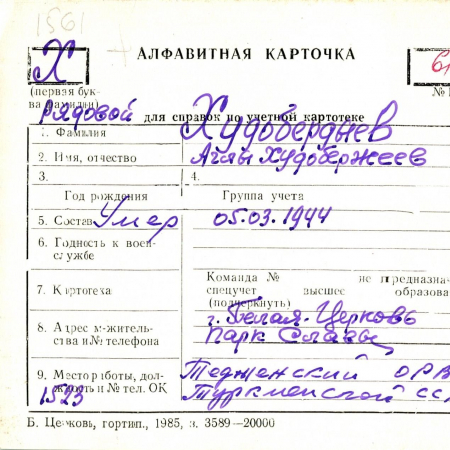 1561
АЛФАВИТНАЯ КАРТОЧКА
Х
61
(первая бук-
ва фамилии)
№
рядовой для справок по учетной картотеке
1. Фамилия Худобердыев
2. Имя, отчество Аглы Худобержеев
3.
4.
Год рождения
Группа учета
5. Состав Умер 05.03.1944
6. Годность к воен-
службе
Команда № не предназна-
7. Картотека спецучет высшее образова
(подчеркнуть)
г. Белая-Церковь
8. Адрес м-житель-
ства и № телефона
Парк Славы
9. Место работы, дол-
жность и № тел. ОК
Теджменский ОРВ
1523 Туркменской сс
Б. Церковь, гортип., 1985, з. 3589—20000